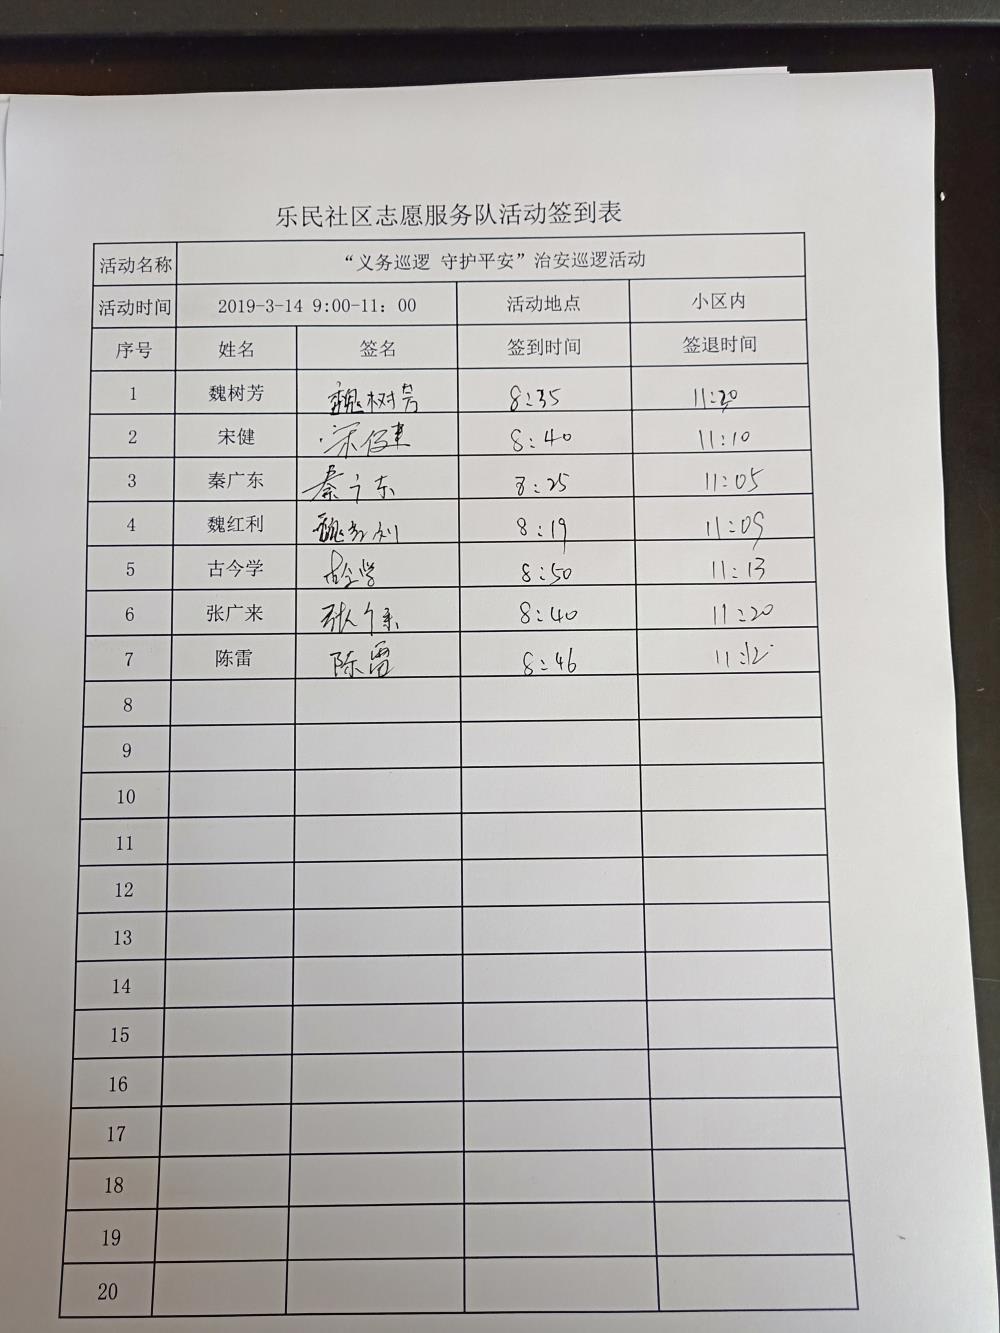 乐民社区志愿服务队活动签到表
活动名称 “义务巡逻 守护平安”治安巡逻活动
活动时间 2019-3-14 9:00-11：00 活动地点 小区内
序号 姓名 签名 签到时间 签退时间
1 魏树芳 魏树芳 8:35 11:20
2 宋健 宋健 8:40 11:10
3 秦广东 秦广东 8:25 11:05
4 魏红利 魏红利 8:19 11:09
5 古今学 古今学 8:50 11:13
6 张广来 张广来 8:40 11:20
7 陈雷 陈雷 8:46 11:12
8
9
10
11
12
13
14
15
16
17
18
19
20